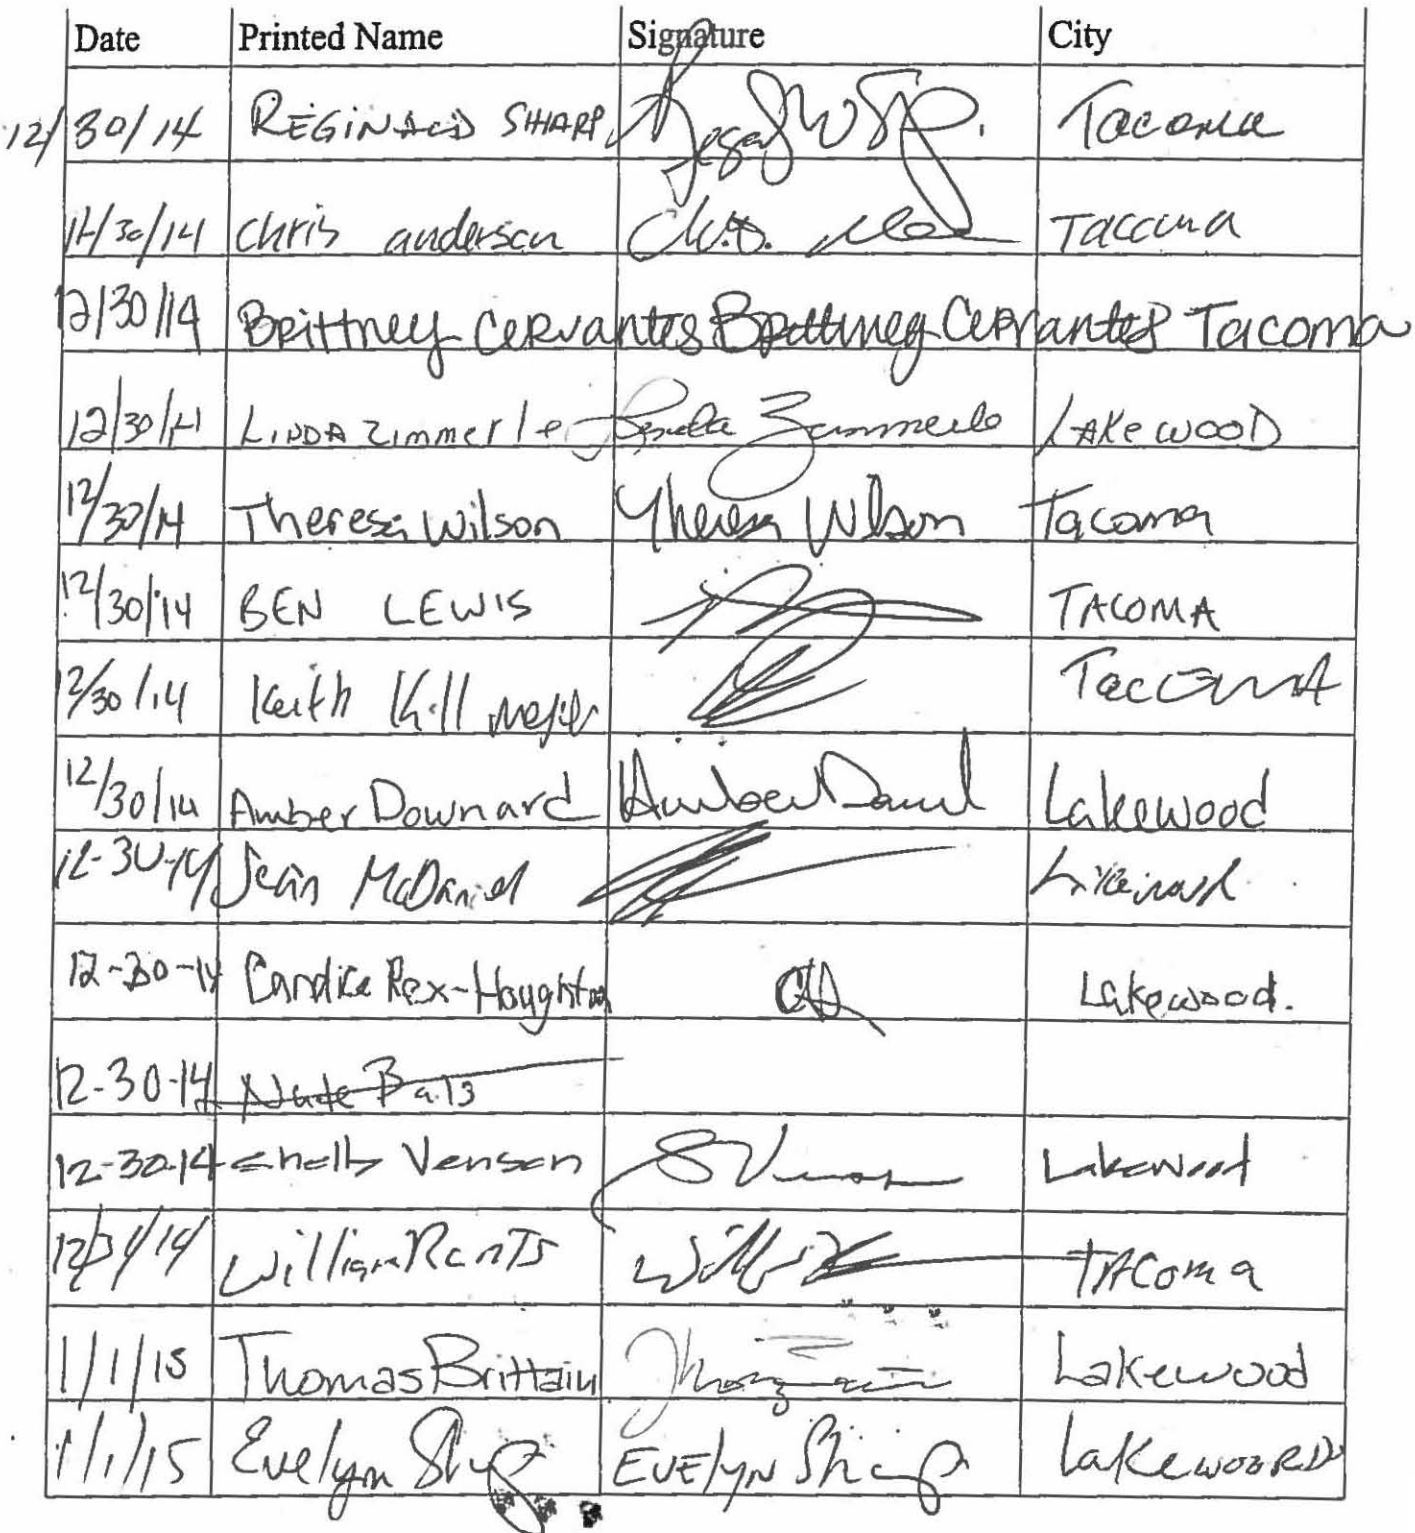 Date Printed Name Signature City
12/30/14 REGINALD SHARP Tacoma
12/30/14 Chris anderson Tacoma
12/30/14 Brittney Cervantes Brittney Cervantes Tacoma
12/30/14 LINDA Zimmerle Linda Zimmerle LAKeWOOD
12/30/14 Theresa Wilson Theresa Wilson Tacoma
12/30/14 BEN LEWIS TACOMA
12/30/14 Keith Killmeyer TacOmA
12/30/14 Amber Downard Lakewood
12-30-14 Sean McDaniel Lakewood
12-30-14 Candice Rex-Houghton Lakewood.
12-30-14 Nate
12-30-14 Shelly Venson SVenson Lakewood
12/31/14 William Rants TACOMA
1/1/15 Thomas Brittain Lakewood
1/1/15 Evelyn Sharp EVElyN Sharp LakewooRD